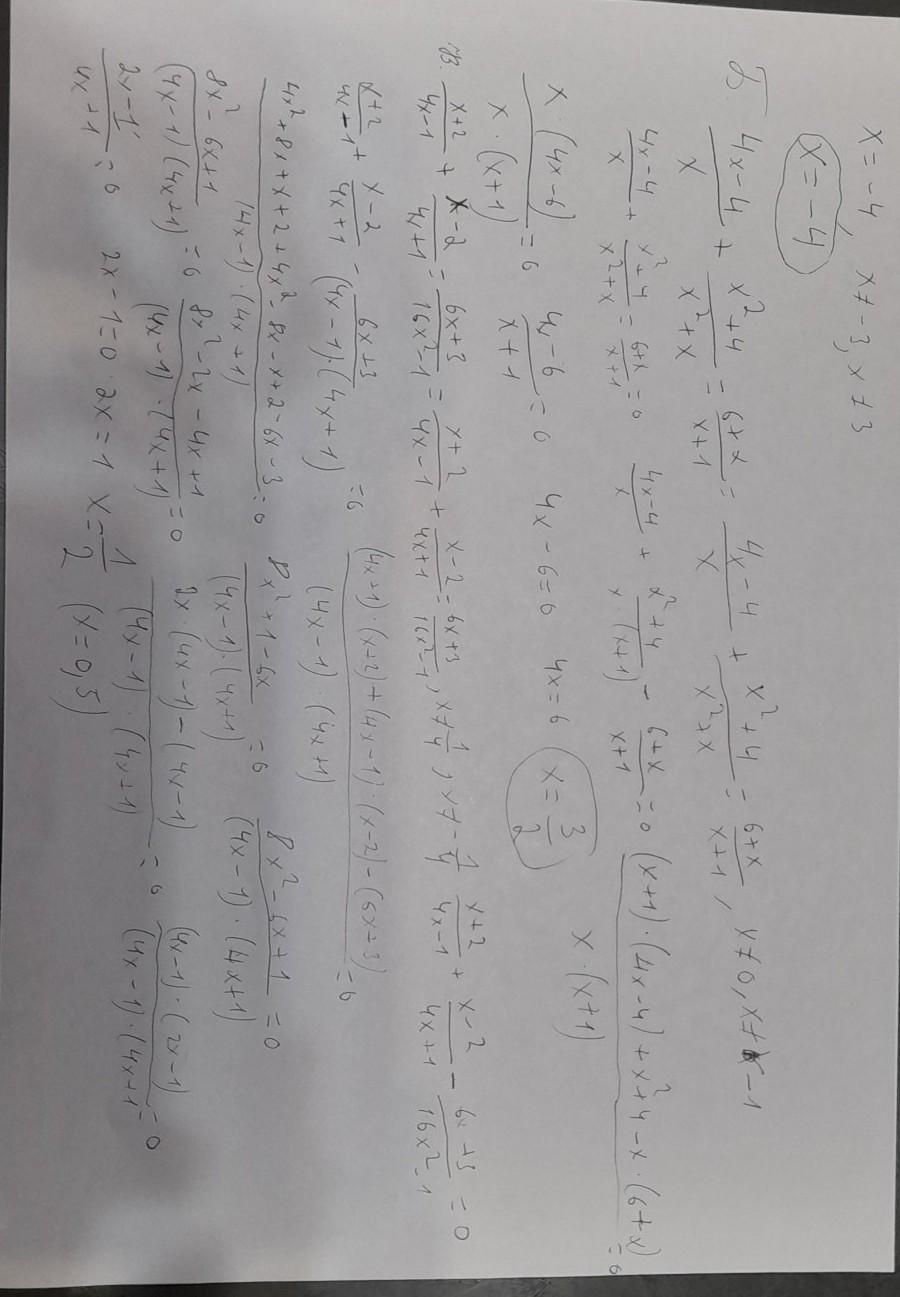 x = -4, x ≠ -3, x ≠ 3
x = -4
(4x-4)/x + (x²+4)/(x²+x) = (6+x)/(x+1) = (4x-4)/x + (x²+4)/(x²+x) = (6+x)/(x+1), x ≠ 0, x ≠ -1
(4x-4)/x + (x²+4)/(x²+x) = (6+x)/(x+1) = 0 (4x-4)/x + (x²+4)/(x·(x+1)) - (6+x)/(x+1) = 0 ((x+1)·(4x-4)+x²+4-x·(6+x))/(x·(x+1)) = 0
(x·(4x-6))/(x·(x+1)) = 0 (4x-6)/(x+1) = 0 4x-6=0 4x=6 x = 3/2
(x+2)/(4x-1) + (x-2)/(4x+1) = (6x+3)/(16x²-1) = (x+2)/(4x-1) + (x-2)/(4x+1) = (6x+3)/(16x²-1), x ≠ 1/4, x ≠ -1/4 (x+2)/(4x-1) + (x-2)/(4x+1) - (6x+3)/(16x²-1) = 0
(x+2)/(4x-1) + (x-2)/(4x+1) - (6x+3)/((4x-1)·(4x+1)) = 0 ((4x+1)·(x+2)+(4x-1)·(x-2)-(6x+3))/((4x-1)·(4x+1)) = 0
(4x²+8x+x+2+4x²-8x-x+2-6x-3)/((4x-1)·(4x+1)) = 0 (8x²+1-6x)/((4x-1)·(4x+1)) = 0 (8x²-6x+1)/((4x-1)·(4x+1)) = 0
(8x²-6x+1)/((4x-1)(4x+1)) = 0 (8x²-2x-4x+1)/((4x-1)·(4x+1)) = 0 (2x·(4x-1)-(4x-1))/((4x-1)·(4x+1)) = 0 ((4x-1)·(2x-1))/((4x-1)·(4x+1)) = 0
(2x-1)/(4x+1) = 0 2x-1=0 2x=1 x = 1/2 (x=0,5)